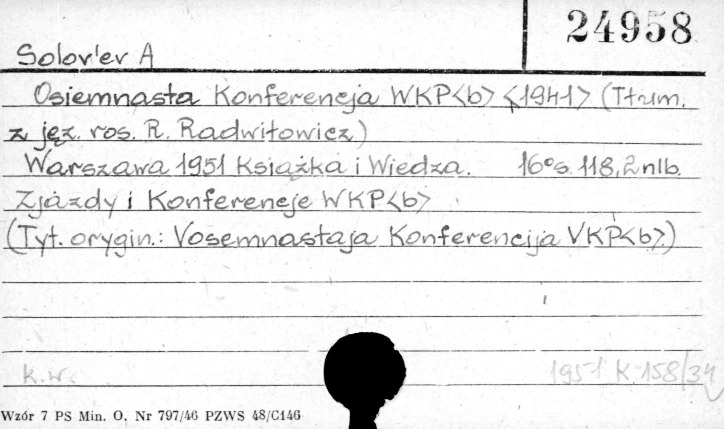 24958
Solov'ev A
Osiemnasta Konferencja WKP<b> <1941> (Tłum.
z jęz. ros. R. Radwiłowicz)
Warszawa 1951 Książka i Wiedza. 16° s. 118, 2 nlb.
Zjazdy i Konferencje WKP<b>
(Tyt. orygin.: Vosemnastaja Konferencija VKP<b>.)
k.w. 1951 K-158/34
Wzór 7 PS Min. O. Nr 797/46 PZWS 48/C146